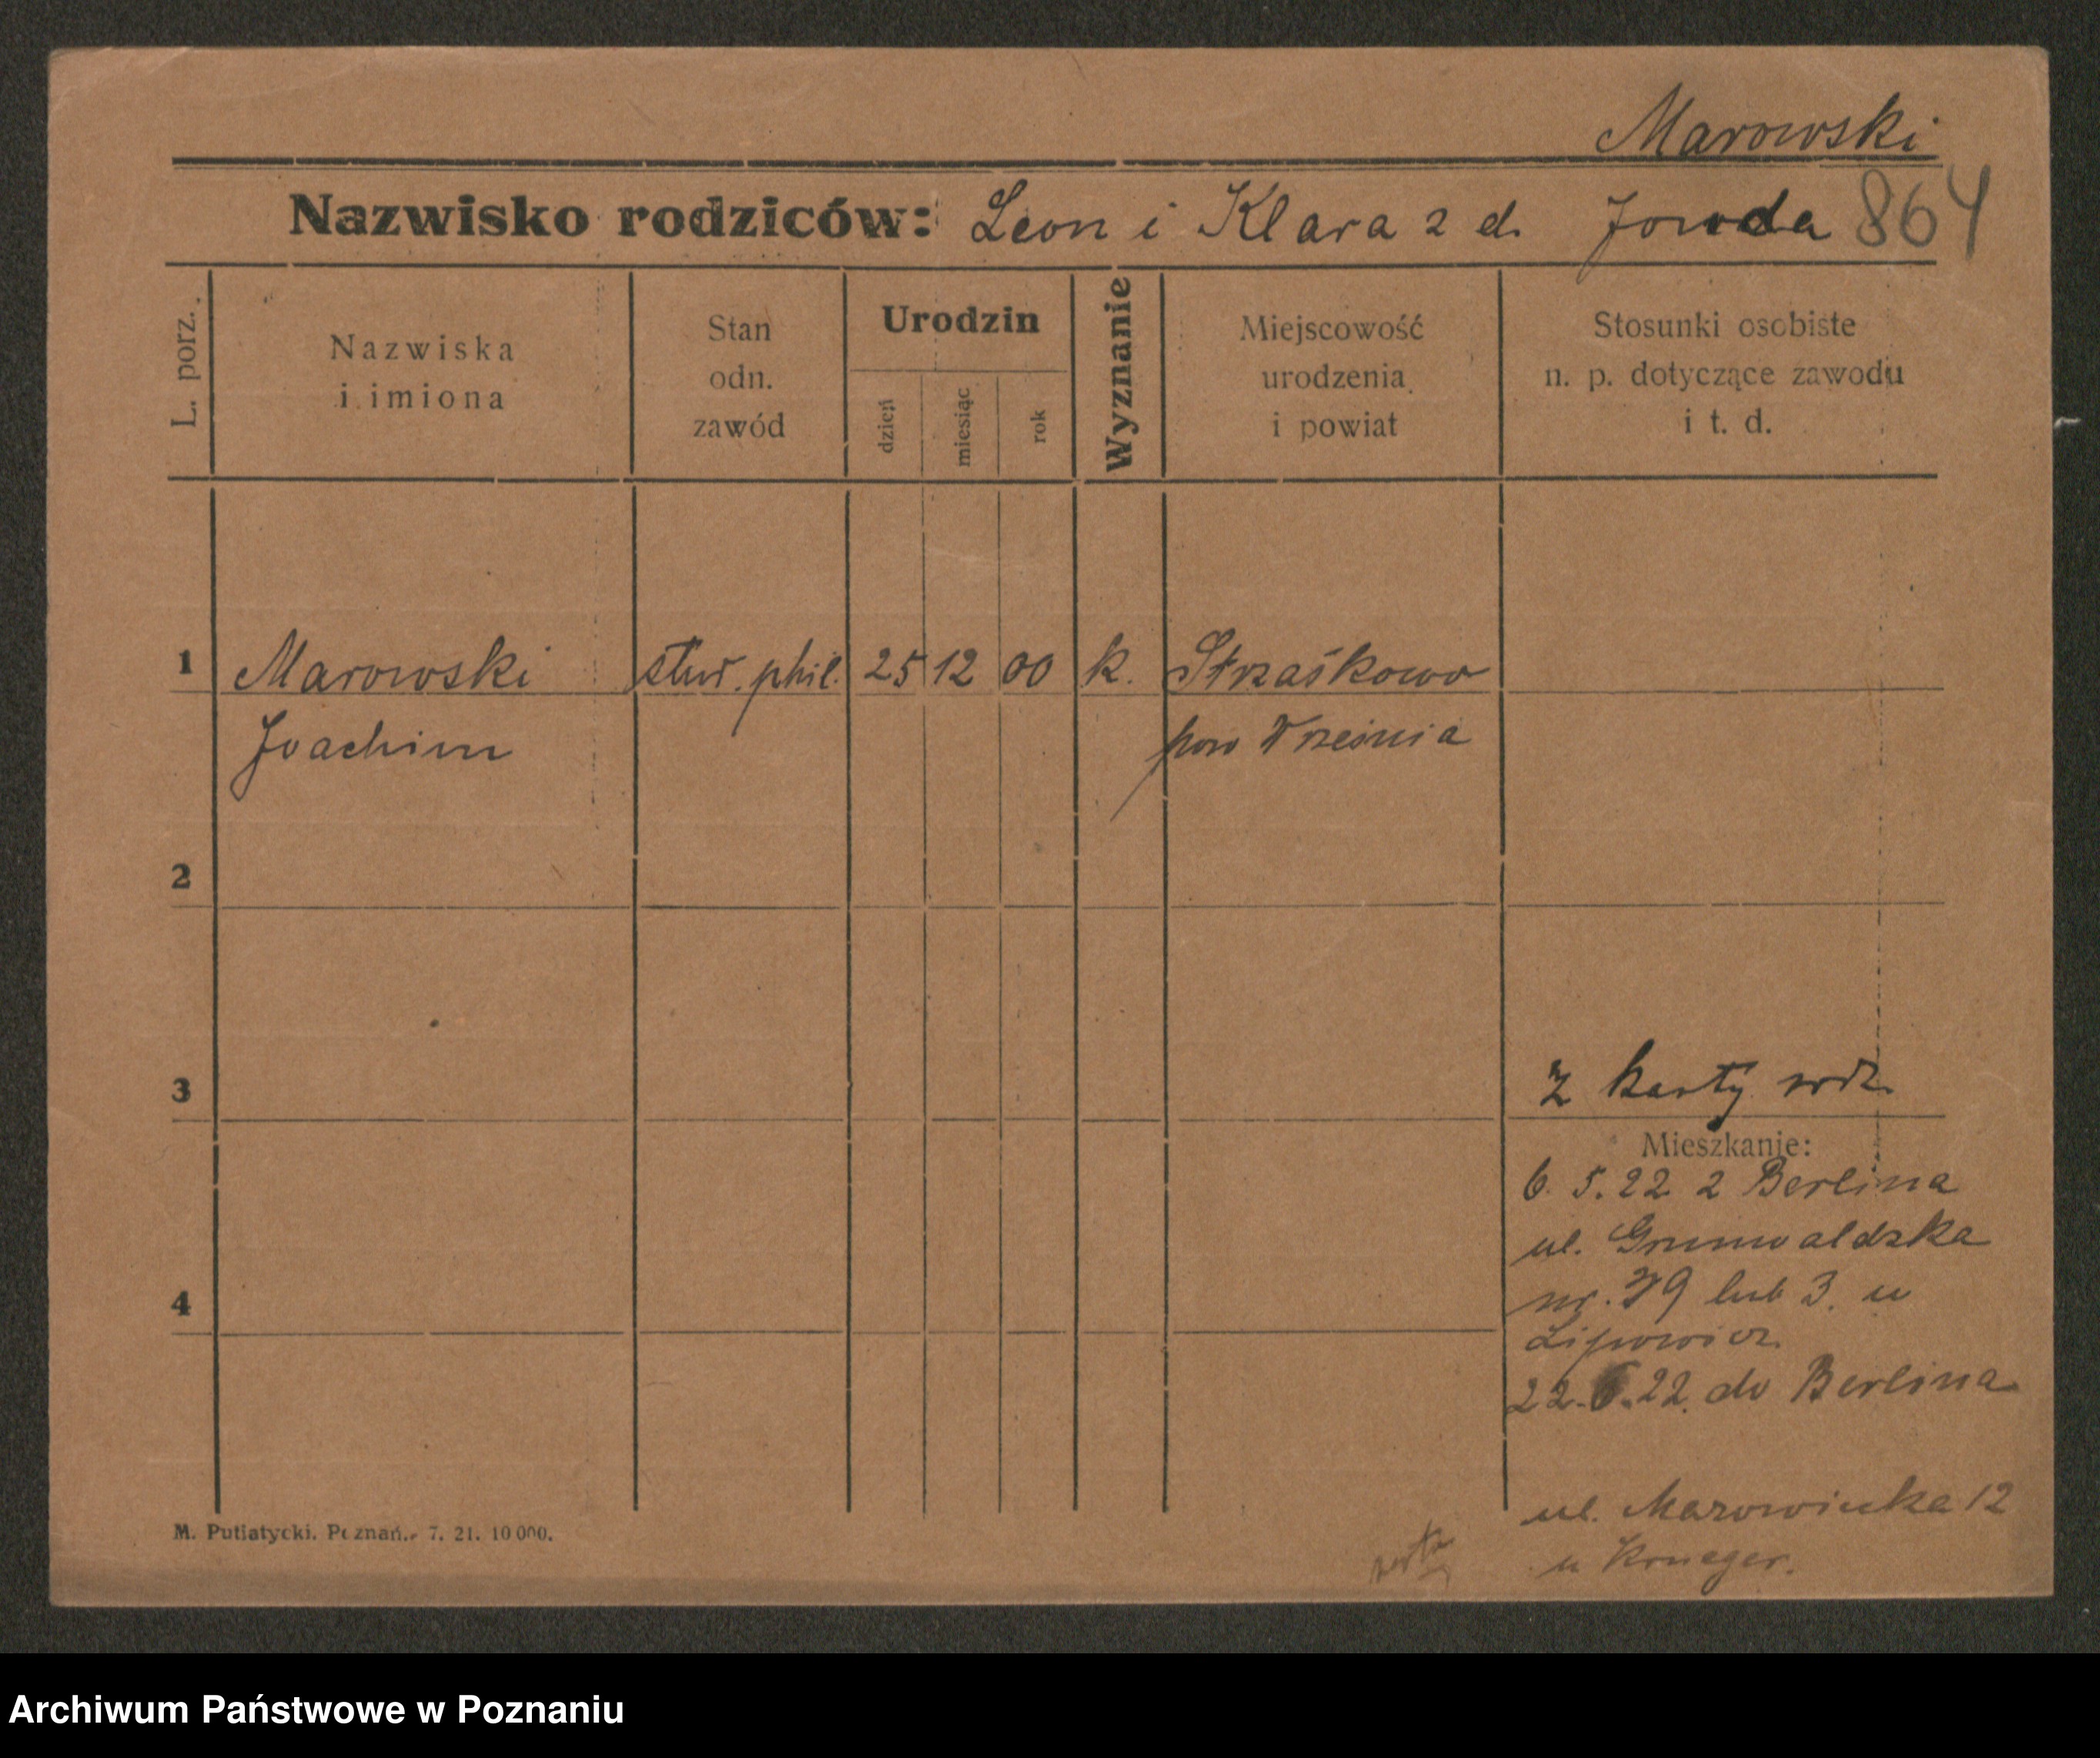 Marowski
Nazwisko rodziców: Leon i Klara z d. 864
L. porz.
Nazwiska
i imiona
Stan
odn.
zawód
Urodzin
dzień
miesiąc
rok
Wyznanie
Miejscowość
urodzenia
i powiat
Stosunki osobiste
n. p. dotyczące zawodu
i t. d.
1 Marowski stud. phil. 25 12 00 k. Strzałkowo
Joachim pow Września
2
3
z karty rodz.
Mieszkanie:
6. 5. 22 z Berlina
ul. Grunwaldzka
nr. 39 lub 3. u
4
Lipowicz.
22.6.22. do Berlina
ul. 12
u Krueger.
M. Putiatycki. Poznań.- 7. 21. 10 000.
Archiwum Państwowe w Poznaniu